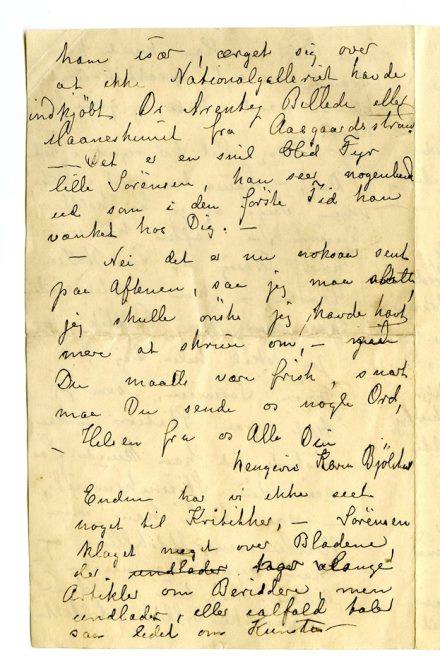 ham især, ærget sig over
at ikke Nationalgalleriet havde
indkjöbt Dr Arentz Billede eller
Maaneskinnet fra Aasgaardsstrand
— Det er en snil blid Fyr
lille Sörensen, han seer nogenlunde
ud som i den förste Tid han
vanket hos Dig. —
— Nei det er nu noksaa sent
paa Aftenen, saa jeg maa slutte,
jeg skulle önske jeg havde havt
mere at skrive om, —
Du maatte være frisk, snart
maa Du sende os nogle Ord,
Hilsen fra os Alle Din
hengivne Karen Bjölstad
Endnu har vi ikke seet
noget til Kritikker, — Sörensen
klaget meget over Bladene,
der undlader tager alange
Artikler om Beriddere, men
undlader, eller ialfald taler
saa lidet om Kunster